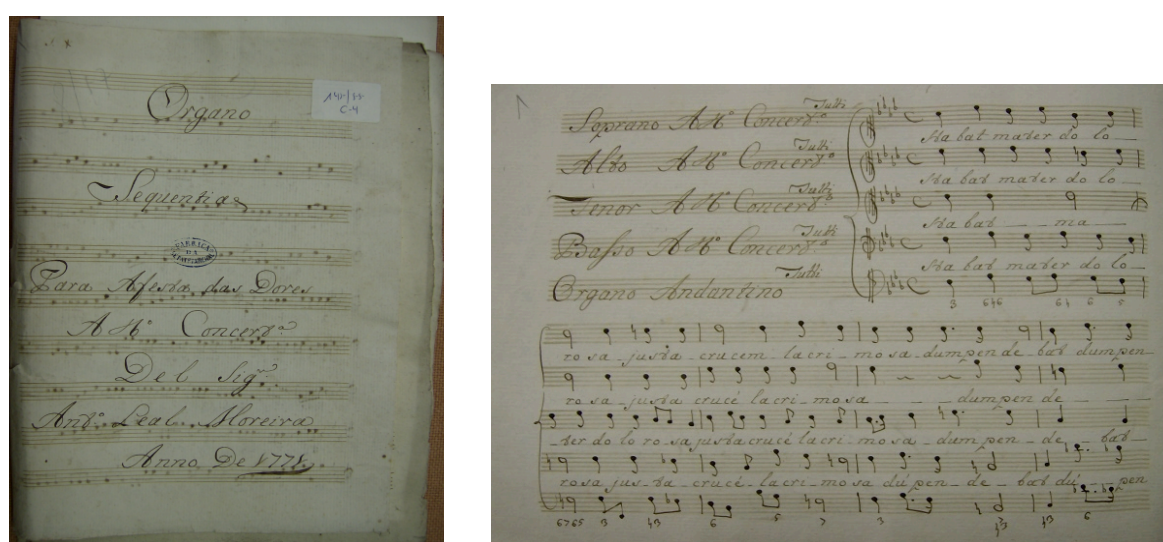 Organo
Sequentia
Para Afesta das Dores
A 4º Concertº
Del Sigr.
Antº Leal Moreira
Anno De 1778
Soprano A 4º Concertº Tutti
Sta bat mater do lo
Alto A 4º Concertº Tutti
Sta bat mater do lo
Tenor A 4º Concertº Tutti
Sta bat ma
Basso A 4º Concertº Tutti
Sta bat mater do lo
Organo Andantino Tutti
ro sa - justa - crucem - lacri - mosa - dum pen de - bat dum pen
ro sa - justa crucé lacri - mosa - dum pen de
ter do lo ro - sa justa crucé lacri - mo sa - dum pen - de - bat
rosa jus - ta - crucé - lacri - mo sa dú pen - de - bat dú - pen